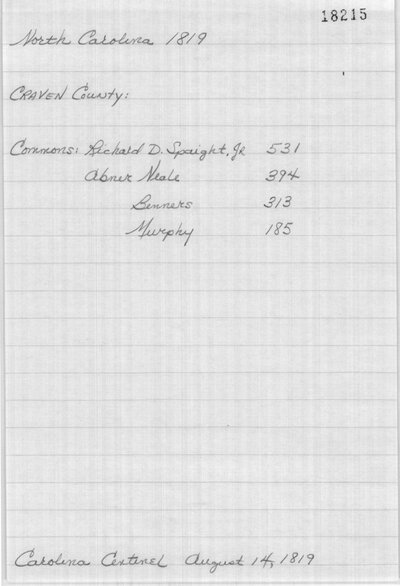 18215
North Carolina 1819
CRAVEN County:
Commons: Richard D. Spaight, Jr 531
Abner Neale 394
Benners 313
Murphy 185
Carolina Centinel August 14, 1819